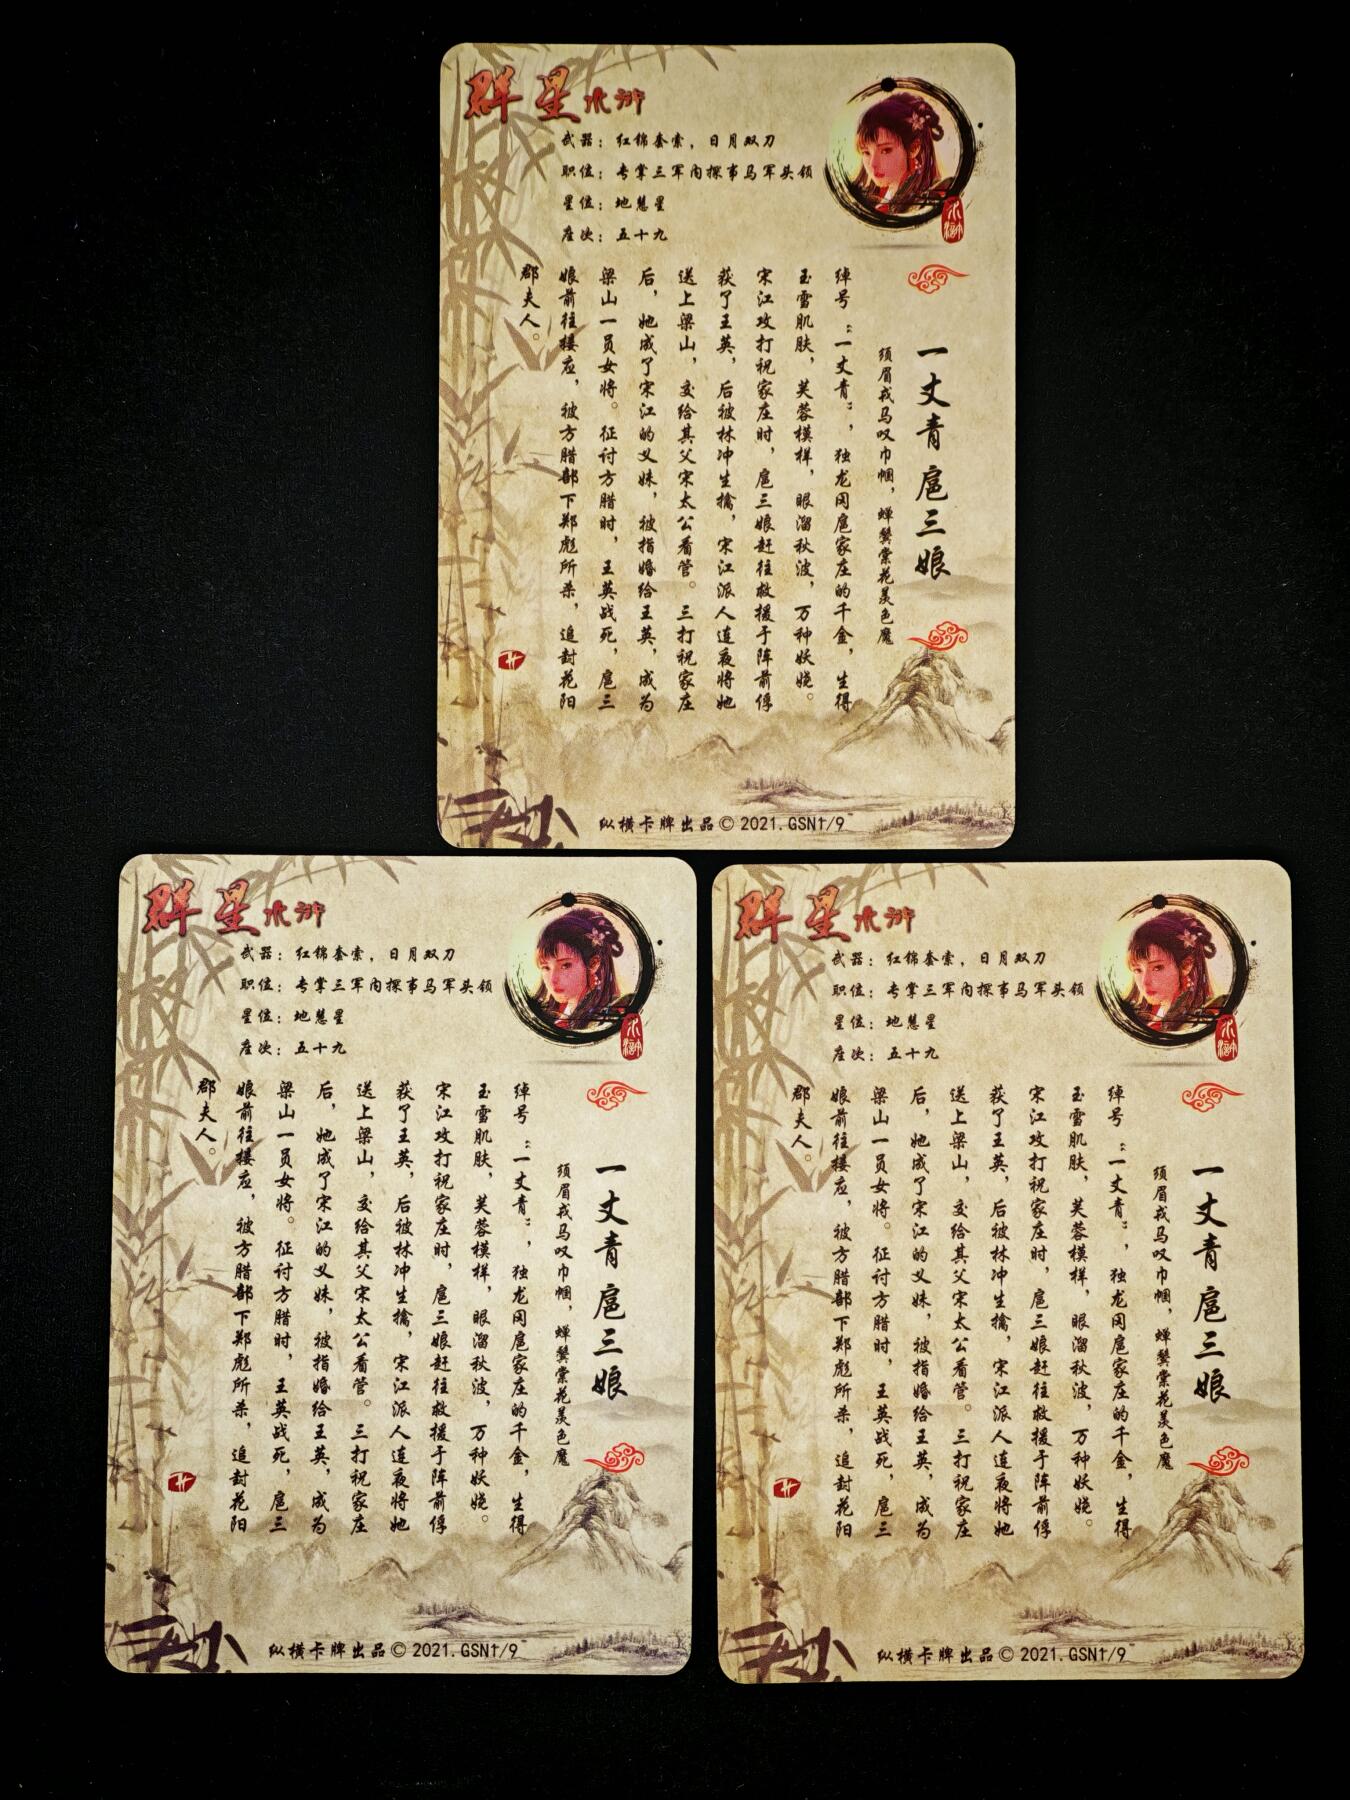 群星水浒
武器：红锦套索，日月双刀
职位：专掌三军内探事马军头领
星位：地慧星
座次：五十九
水浒
一丈青 扈三娘
须眉戎马叹巾帼，蝉鬓棠花羡色魔
绰号："一丈青"，独龙冈扈家庄的千金，生得
玉雪肌肤，芙蓉模样，眼溜秋波，万种妖娆。
宋江攻打祝家庄时，扈三娘赶往救援于阵前俘
获了王英，后被林冲生擒，宋江派人连夜将她
送上梁山，交给其父宋太公看管。三打祝家庄
后，她成了宋江的义妹，被指婚给王英，成为
梁山一员女将。征讨方腊时，王英战死，扈三
娘前往接应，被方腊部下郑彪所杀，追封花阳
郡夫人。
纵横卡牌出品© 2021.GSN1/9
群星水浒
武器：红锦套索，日月双刀
职位：专掌三军内探事马军头领
星位：地慧星
座次：五十九
水浒
一丈青 扈三娘
须眉戎马叹巾帼，蝉鬓棠花羡色魔
绰号："一丈青"，独龙冈扈家庄的千金，生得
玉雪肌肤，芙蓉模样，眼溜秋波，万种妖娆。
宋江攻打祝家庄时，扈三娘赶往救援于阵前俘
获了王英，后被林冲生擒，宋江派人连夜将她
送上梁山，交给其父宋太公看管。三打祝家庄
后，她成了宋江的义妹，被指婚给王英，成为
梁山一员女将。征讨方腊时，王英战死，扈三
娘前往接应，被方腊部下郑彪所杀，追封花阳
郡夫人。
纵横卡牌出品© 2021.GSN1/9
群星水浒
武器：红锦套索，日月双刀
职位：专掌三军内探事马军头领
星位：地慧星
座次：五十九
水浒
一丈青 扈三娘
须眉戎马叹巾帼，蝉鬓棠花羡色魔
绰号："一丈青"，独龙冈扈家庄的千金，生得
玉雪肌肤，芙蓉模样，眼溜秋波，万种妖娆。
宋江攻打祝家庄时，扈三娘赶往救援于阵前俘
获了王英，后被林冲生擒，宋江派人连夜将她
送上梁山，交给其父宋太公看管。三打祝家庄
后，她成了宋江的义妹，被指婚给王英，成为
梁山一员女将。征讨方腊时，王英战死，扈三
娘前往接应，被方腊部下郑彪所杀，追封花阳
郡夫人。
纵横卡牌出品© 2021.GSN1/9